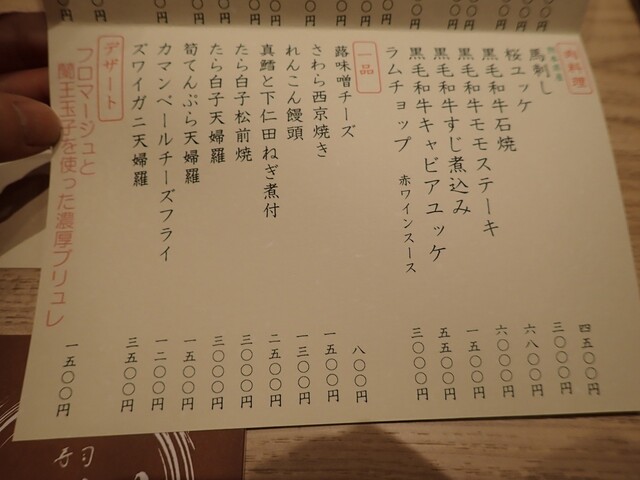 肉料理
馬刺し 四五〇〇円
桜ユッケ 三〇〇〇円
黒毛和牛石焼 六八〇〇円
黒毛和牛モモステーキ 六〇〇〇円
黒毛和牛すじ煮込み 一五〇〇円
黒毛和牛キャビアユッケ 五五〇〇円
ラムチョップ 赤ワインスース 三〇〇〇円
一品
蕗味噌チーズ 八〇〇円
さわら西京焼き 一五〇〇円
れんこん饅頭 一三〇〇円
真鱈と下仁田ねぎ煮付 二五〇〇円
たら白子松前焼 三〇〇〇円
たら白子天婦羅 三〇〇〇円
筍てんぷら天婦羅 一五〇〇円
カマンベールチーズフライ 一二〇〇円
ズワイガニ天婦羅 三五〇〇円
デザート
フロマージュと
蘭王玉子を使った濃厚ブリュレ 一五〇〇円
寿司